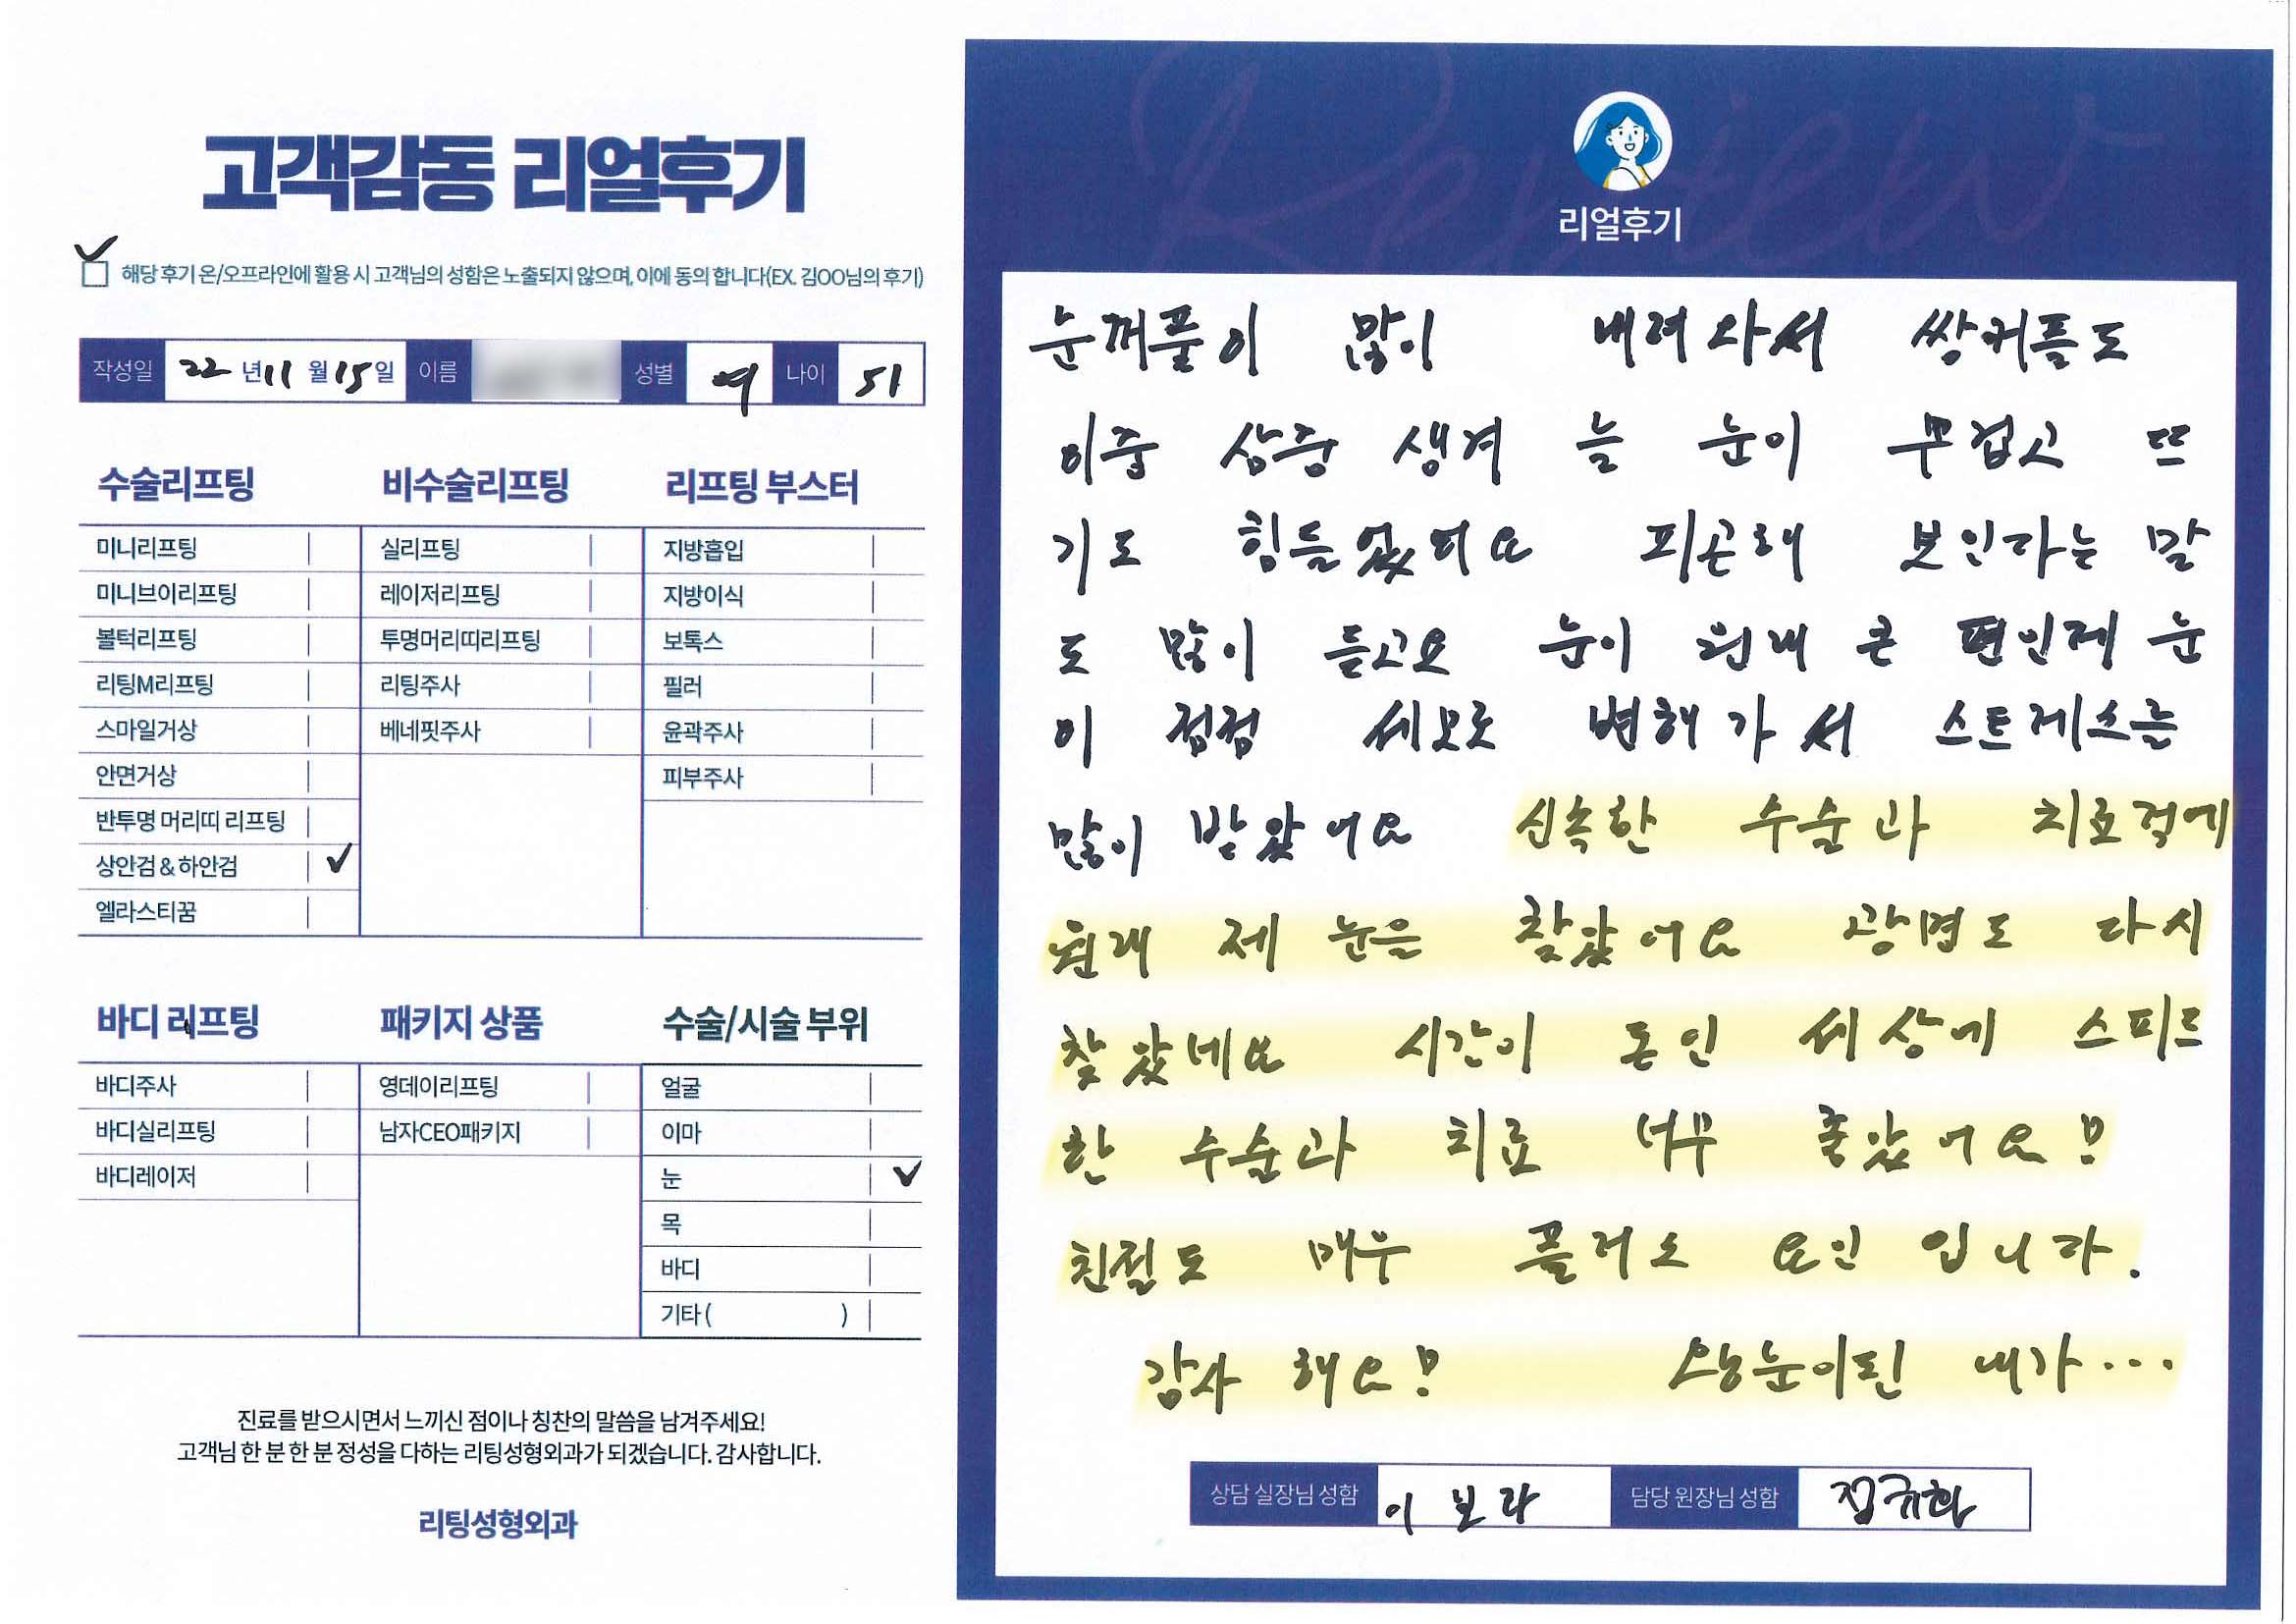 고객감동 리얼후기
해당 후기 온/오프라인에 활용 시 고객님의 성함은 노출되지 않으며, 이에 동의 합니다(EX. 김OO님의 후기)
작성일 22 년 11 월 15 일 이름 성별 여 나이 51
수술리프팅
미니리프팅
미니브이리프팅
볼턱리프팅
리팅M리프팅
스마일거상
안면거상
반투명 머리띠 리프팅
상안검 & 하안검 ✓
엘라스티꿈
비수술리프팅
실리프팅
레이저리프팅
투명머리띠리프팅
리팅주사
베네핏주사
리프팅 부스터
지방흡입
지방이식
보톡스
필러
윤곽주사
피부주사
바디 리프팅
바디주사
바디실리프팅
바디레이저
패키지 상품
영데이리프팅
남자CEO패키지
수술/시술 부위
얼굴
이마
눈 ✓
목
바디
기타 ( )
진료를 받으시면서 느끼신 점이나 칭찬의 말씀을 남겨주세요!
고객님 한 분 한 분 정성을 다하는 리팅성형외과가 되겠습니다. 감사합니다.
리팅성형외과
Review
리얼후기
눈꺼풀이 많이 내려와서 쌍커플도
이중 삼중 생겨 늘 눈이 무겁고 뜨
기도 힘들었어요 피곤해 보인다는 말
도 많이 듣고요 눈이 원래 큰 편인데 눈
이 점점 세모로 변해가서 스트레스를
많이 받았어요 신속한 수술과 치료덕에
원래 제 눈은 찾았어요 광명도 다시
찾았네요 시간이 돈인 세상에 스피드
한 수술과 치료 너무 좋았어요!!
친절도 매우 플러스 요인 입니다.
감사 해요!! 왕눈이된 내가...
상담 실장님 성함 이보라 담당 원장님 성함